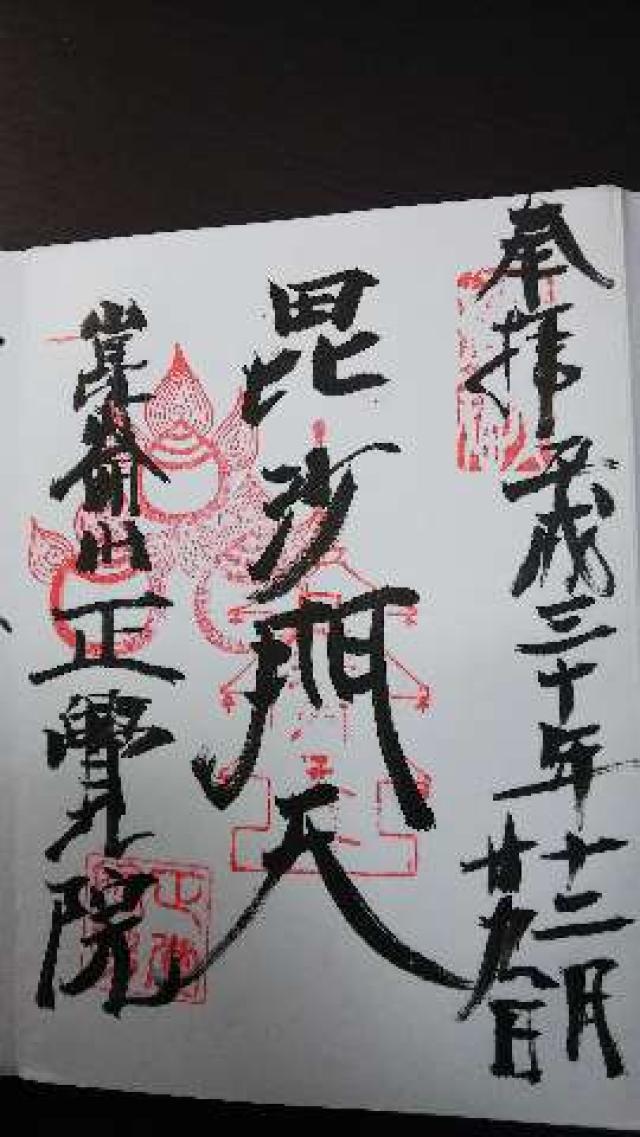 奉拝 平成三十年
十二月
廿九日
毘沙門天
崑崙山 正覺院